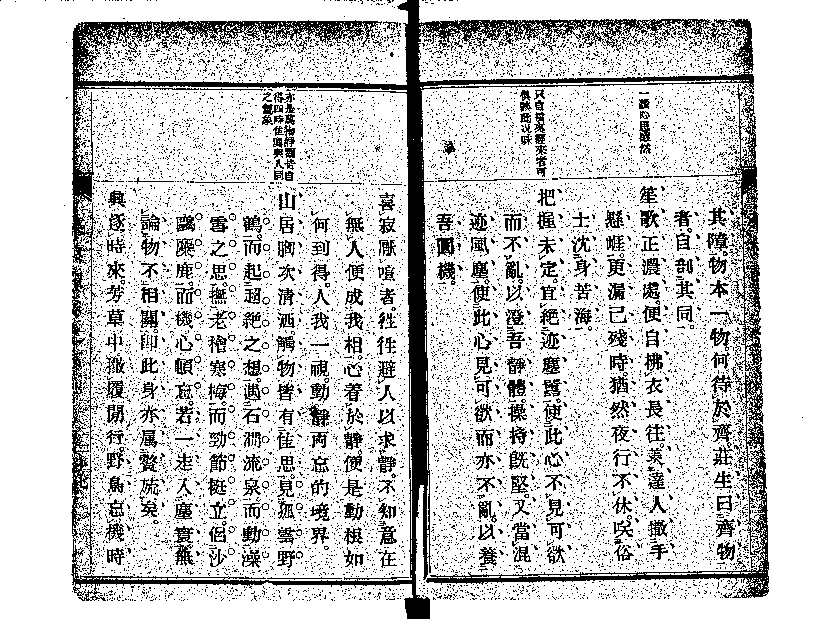 其障。物本一物。何待於齊。莊生曰齊物
者。自剖其同。
笙歌正濃處。便自拂衣長往。羨達人撒手
懸崖。更漏已殘時。猶然夜行不休。咲俗
士沈身苦海。
把握未定。宜絕迹塵囂。使此心不見可欲
而不亂。以澄吾靜體。操持既堅。又當混
迹風塵。使此心見可欲而亦不亂。以養
吾圓機。
亦是萬物靜觀皆自
得四時佳興與人同
之
喜寂厭喧者。往往避人以求靜。不知意在
無人便成我相。心着於靜。便是動根。如
何到得。人我一視。動靜兩忘的境界。
山居胸次清洒。觸物皆有佳思。見孤雲野
鶴。而起超絕之想。遇石澗流泉。而動澡
雪之思。撫老檜寒梅。而勁節挺立。侶沙
鷗麋鹿。而機心頓忘。若一走入塵寰。無
論物不相關。即此身亦屬贅疣矣。
興逐時來。芳草中撒履閒行。野鳥忘機時